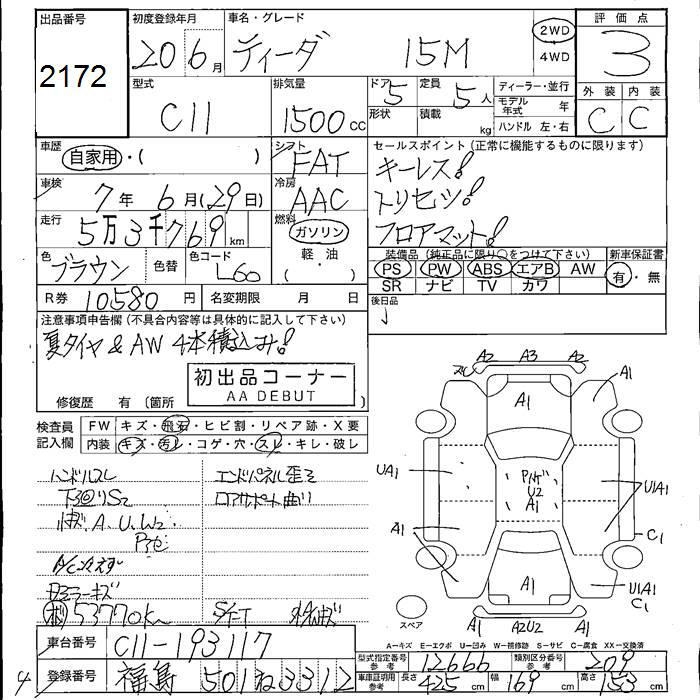 出品番号 初度登録年月 車名・グレード 評価点
2172 20 6月 ティーダ 15M 2WD 4WD 3
型式 排気量 ドア 形状 定員 積載 ディーラー・並行 外装 内装
C11 1500cc 5 5人 kg モデル年式 年 C C
ハンドル 左・右
車歴 自家用・( ) シフト FAT セールスポイント(正常に機能するものに限ります)
車検 7年 6月(29日) 冷房 AAC キーレス!
トリセツ!
走行 5万3千769km 燃料 ガソリン 軽・油 ( ) フロアマット!
色 ブラウン 色替 色コード L60 装備品(純正品に限り○をつけて下さい) 新車保証書
PS PW ABS エアB AW 有・無
SR ナビ TV カワ
R券 10580円 名変期限 月 日 後日品
注意事項申告欄(不具合内容等は具体的に記入して下さい)
夏タイヤ & AW 4本積込み!
初出品コーナー
AA DEBUT
修復歴 有(箇所
検査員記入欄 FW キズ・飛石・ヒビ割・リペア跡・X要
内装 キズ・汚レ・コゲ・穴・スレ・キレ・破レ
ハンドルスレ エンドパネル歪ミ
下回りS2 ロアサポート曲り
A.U.W2.
53770km S/T
A2 A3 A2
A1 A1
UA1 U2 A1 U1A1
A1 C1
A1 U1A1
C1
スペア A1 A2U2 A1
A－キズ E－エクボ U－凹み W－補修跡 S－サビ C－腐食 XX－交換済
車台番号 C11-193117 型式指定番号 参考 12666 類別区分番号 参考 209
登録番号 福島 501 ね 3312 車庫証明用 参考 長さ 425cm 幅 169cm 高さ 153cm